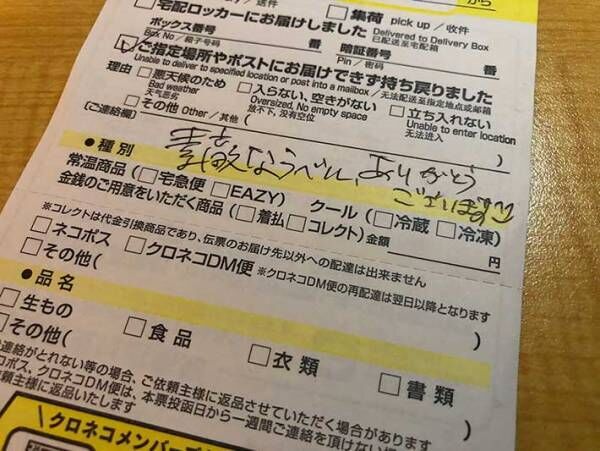 から
送件
□宅配ロッカーにお届けしました Delivered to Delivery Box 已配送至宅配箱
□集荷 pick up / 收件
ボックス番号 Box No / 箱子号码 番 暗証番号 Pin / 密码 番
☑ご指定場所やポストにお届けできず持ち戻りました
Unable to deliver to specified location or post into a mailbox / 无法配送至指定地点或邮箱
理由 □悪天候のため Bad weather 天气恶劣 □入らない、空きがない Oversized, No empty space 放不下,没有空位 □立ち入れない Unable to enter location 无法进入
□その他 Other / 其他 (
(ご連絡欄) )
素敵なラベル、ありがとう
ございます
●種別
常温商品(□宅急便 □EAZY) クール(□冷蔵 □冷凍)
金銭のご用意をいただく商品(□着払 □コレクト)金額 円
※コレクトは代金引換商品であり、伝票のお届け先以外への配達は出来ません
□ネコポス □クロネコDM便 ※クロネコDM便の再配達は翌日以降となります
□その他( )
●品名
□生もの □食品 □衣類 □書類
□その他( )
連絡がとれない等の場合、ご依頼主様に返品させていただく場合があります
ポス、クロネコDM便は、本票投函日から一週間ご連絡を頂けない場
頼主様に返品いたします
\クロネコメンバーズ